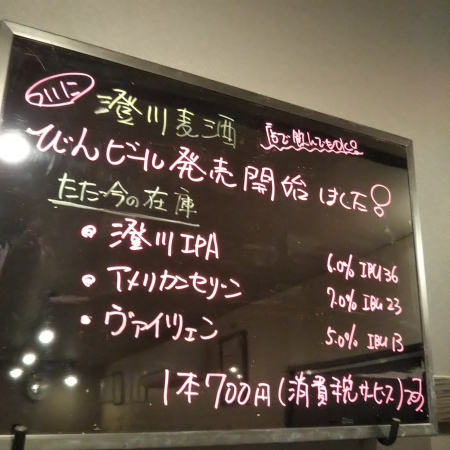 ついに
澄川麦酒 店で飲んでもOK!
びんビール発売開始しました!
ただ今の在庫
・澄川IPA 6.0% IBU 36
・アメリカンセゾン 7.0% IBU 23
・ヴァイツェン 5.0% IBU 13
1本700円(消費税サービス)